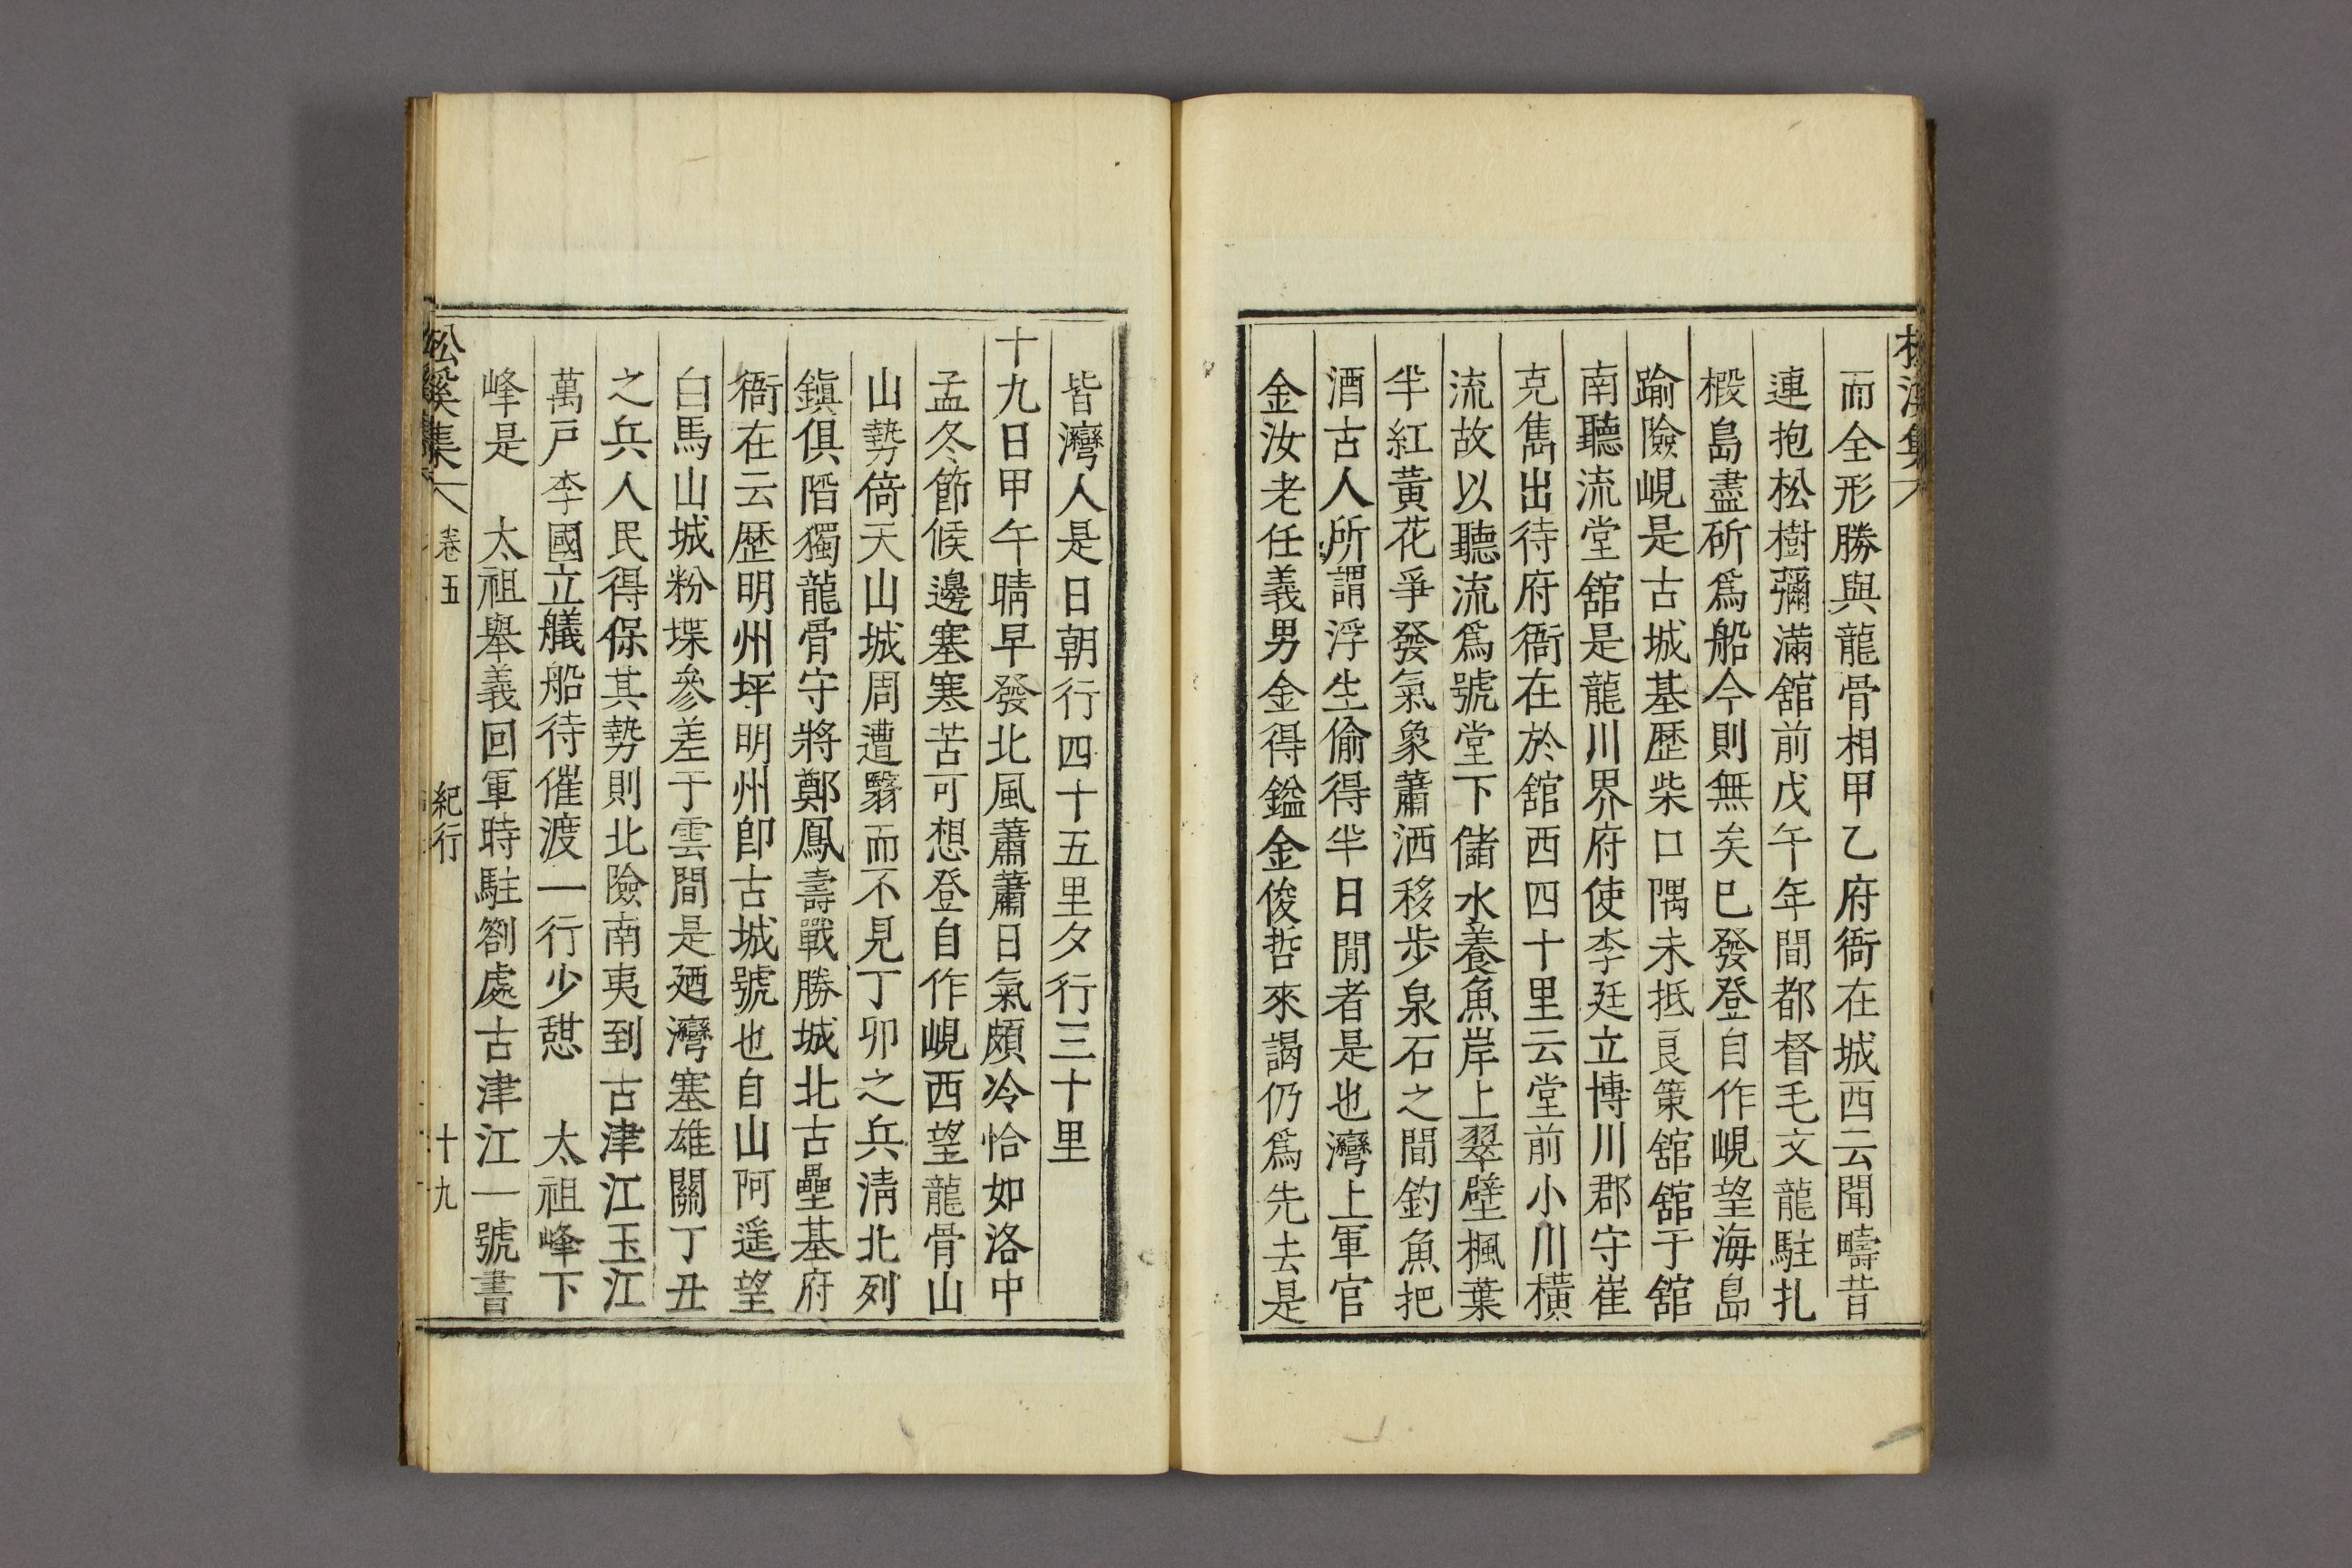 而全形勝與龍骨相甲乙府衙在城西云聞疇昔
連抱松樹彌滿舘前戊午年間都督毛文龍駐扎
椵島盡斫爲船今則無矣巳發登自作峴望海島
踰險峴是古城基歷柴口隅未抵良策舘舘于舘
南聽流堂舘是龍川界府使李廷立博川郡守崔
克雋出待府衙在於舘西四十里云堂前小川橫
流故以聽流爲號堂下儲水養魚岸上翠壁楓葉
半紅黃花爭發氣象蕭洒移步泉石之間釣魚把
酒古人所謂浮生偷得半日閒者是也灣上軍官
金汝老任義男金得鎰金俊哲來謁仍爲先去是
皆灣人是日朝行四十五里夕行三十里
十九日甲午晴早發北風蕭蕭日氣頗冷恰如洛中
孟冬節候邊塞寒苦可想登自作峴西望龍骨山
山勢倚天山城周遭翳而不見丁卯之兵淸北列
鎭俱陷獨龍骨守將鄭鳳壽戰勝城北古壘基府
衙在云歷明州坪明州卽古城號也自山阿遥望
白馬山城粉堞參差于雲間是廼灣塞雄關丁丑
之兵人民得保其勢則北險南夷到古津江玉江
萬戶李國立艤船待催渡一行少憇　太祖峰下
峰是　太祖舉義回軍時駐劄處古津江一號書
松溪集　卷五　紀行　十九